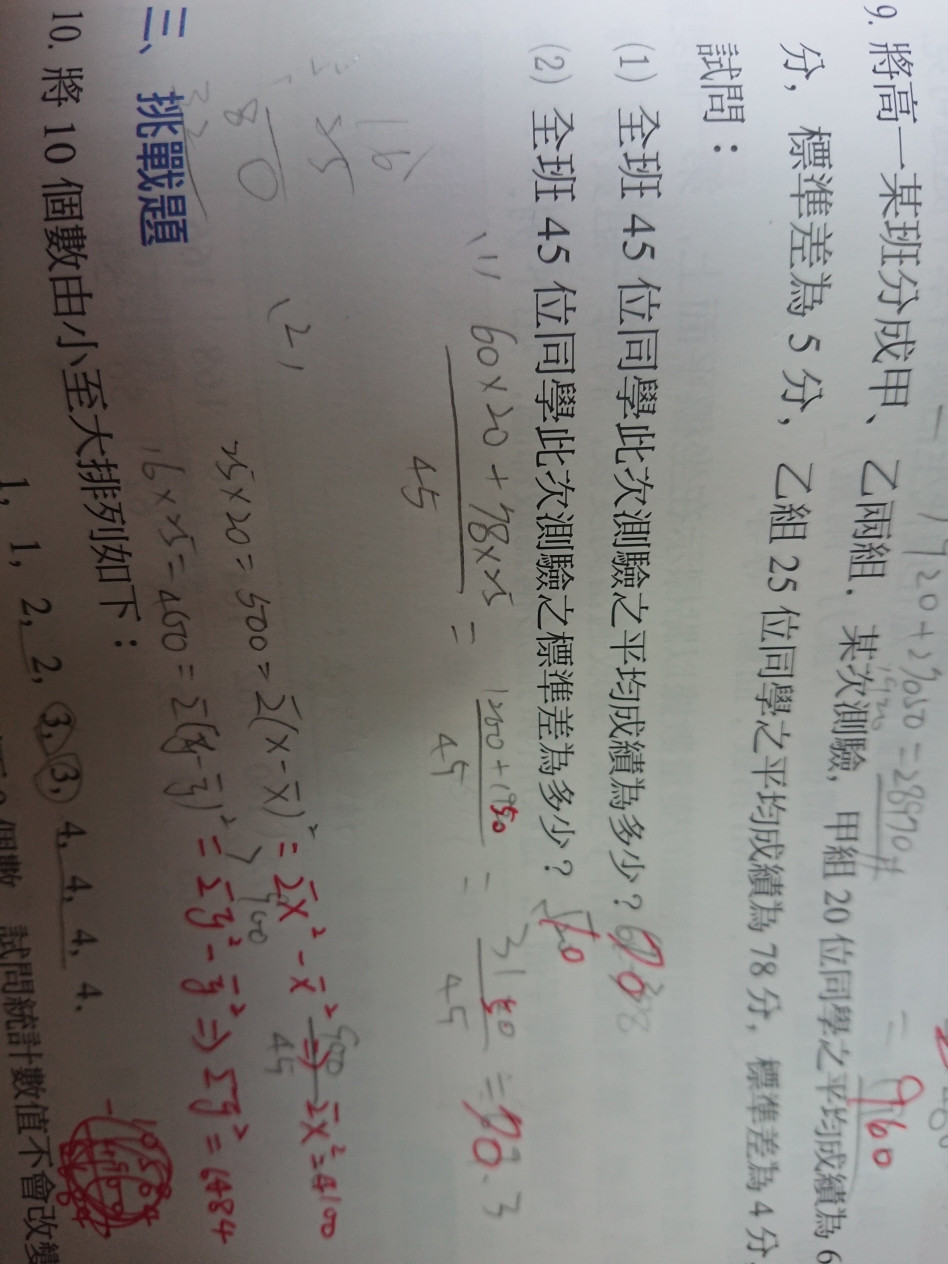 720+29050=28890
=960
9. 將高一某班分成甲、乙兩組. 某次測驗, 甲組 20 位同學之平均成績為 6
分, 標準差為 5 分, 乙組 25 位同學之平均成績為 78 分, 標準差為 4 分,
試問：
(1) 全班 45 位同學此次測驗之平均成績為多少? 70
(2) 全班 45 位同學此次測驗之標準差為多少? √10
16
×5
80
(1) 60×20+78×25 / 45 = 1200+1950 / 45 = 3150 / 45 = 70.3
(2)
25×20=500=Σ(x-x̄)²=Σx²-x̄² ⇒ Σx²=4100
900
900
45
16×25=400=Σ(y-ȳ)²=Σy²-ȳ² ⇒ Σy²=6484
三、挑戰題
10. 將 10 個數由小至大排列如下：
1, 1, 2, 2, 3, 3, 4, 4, 4, 4.
個數 試問統計數值不會改變